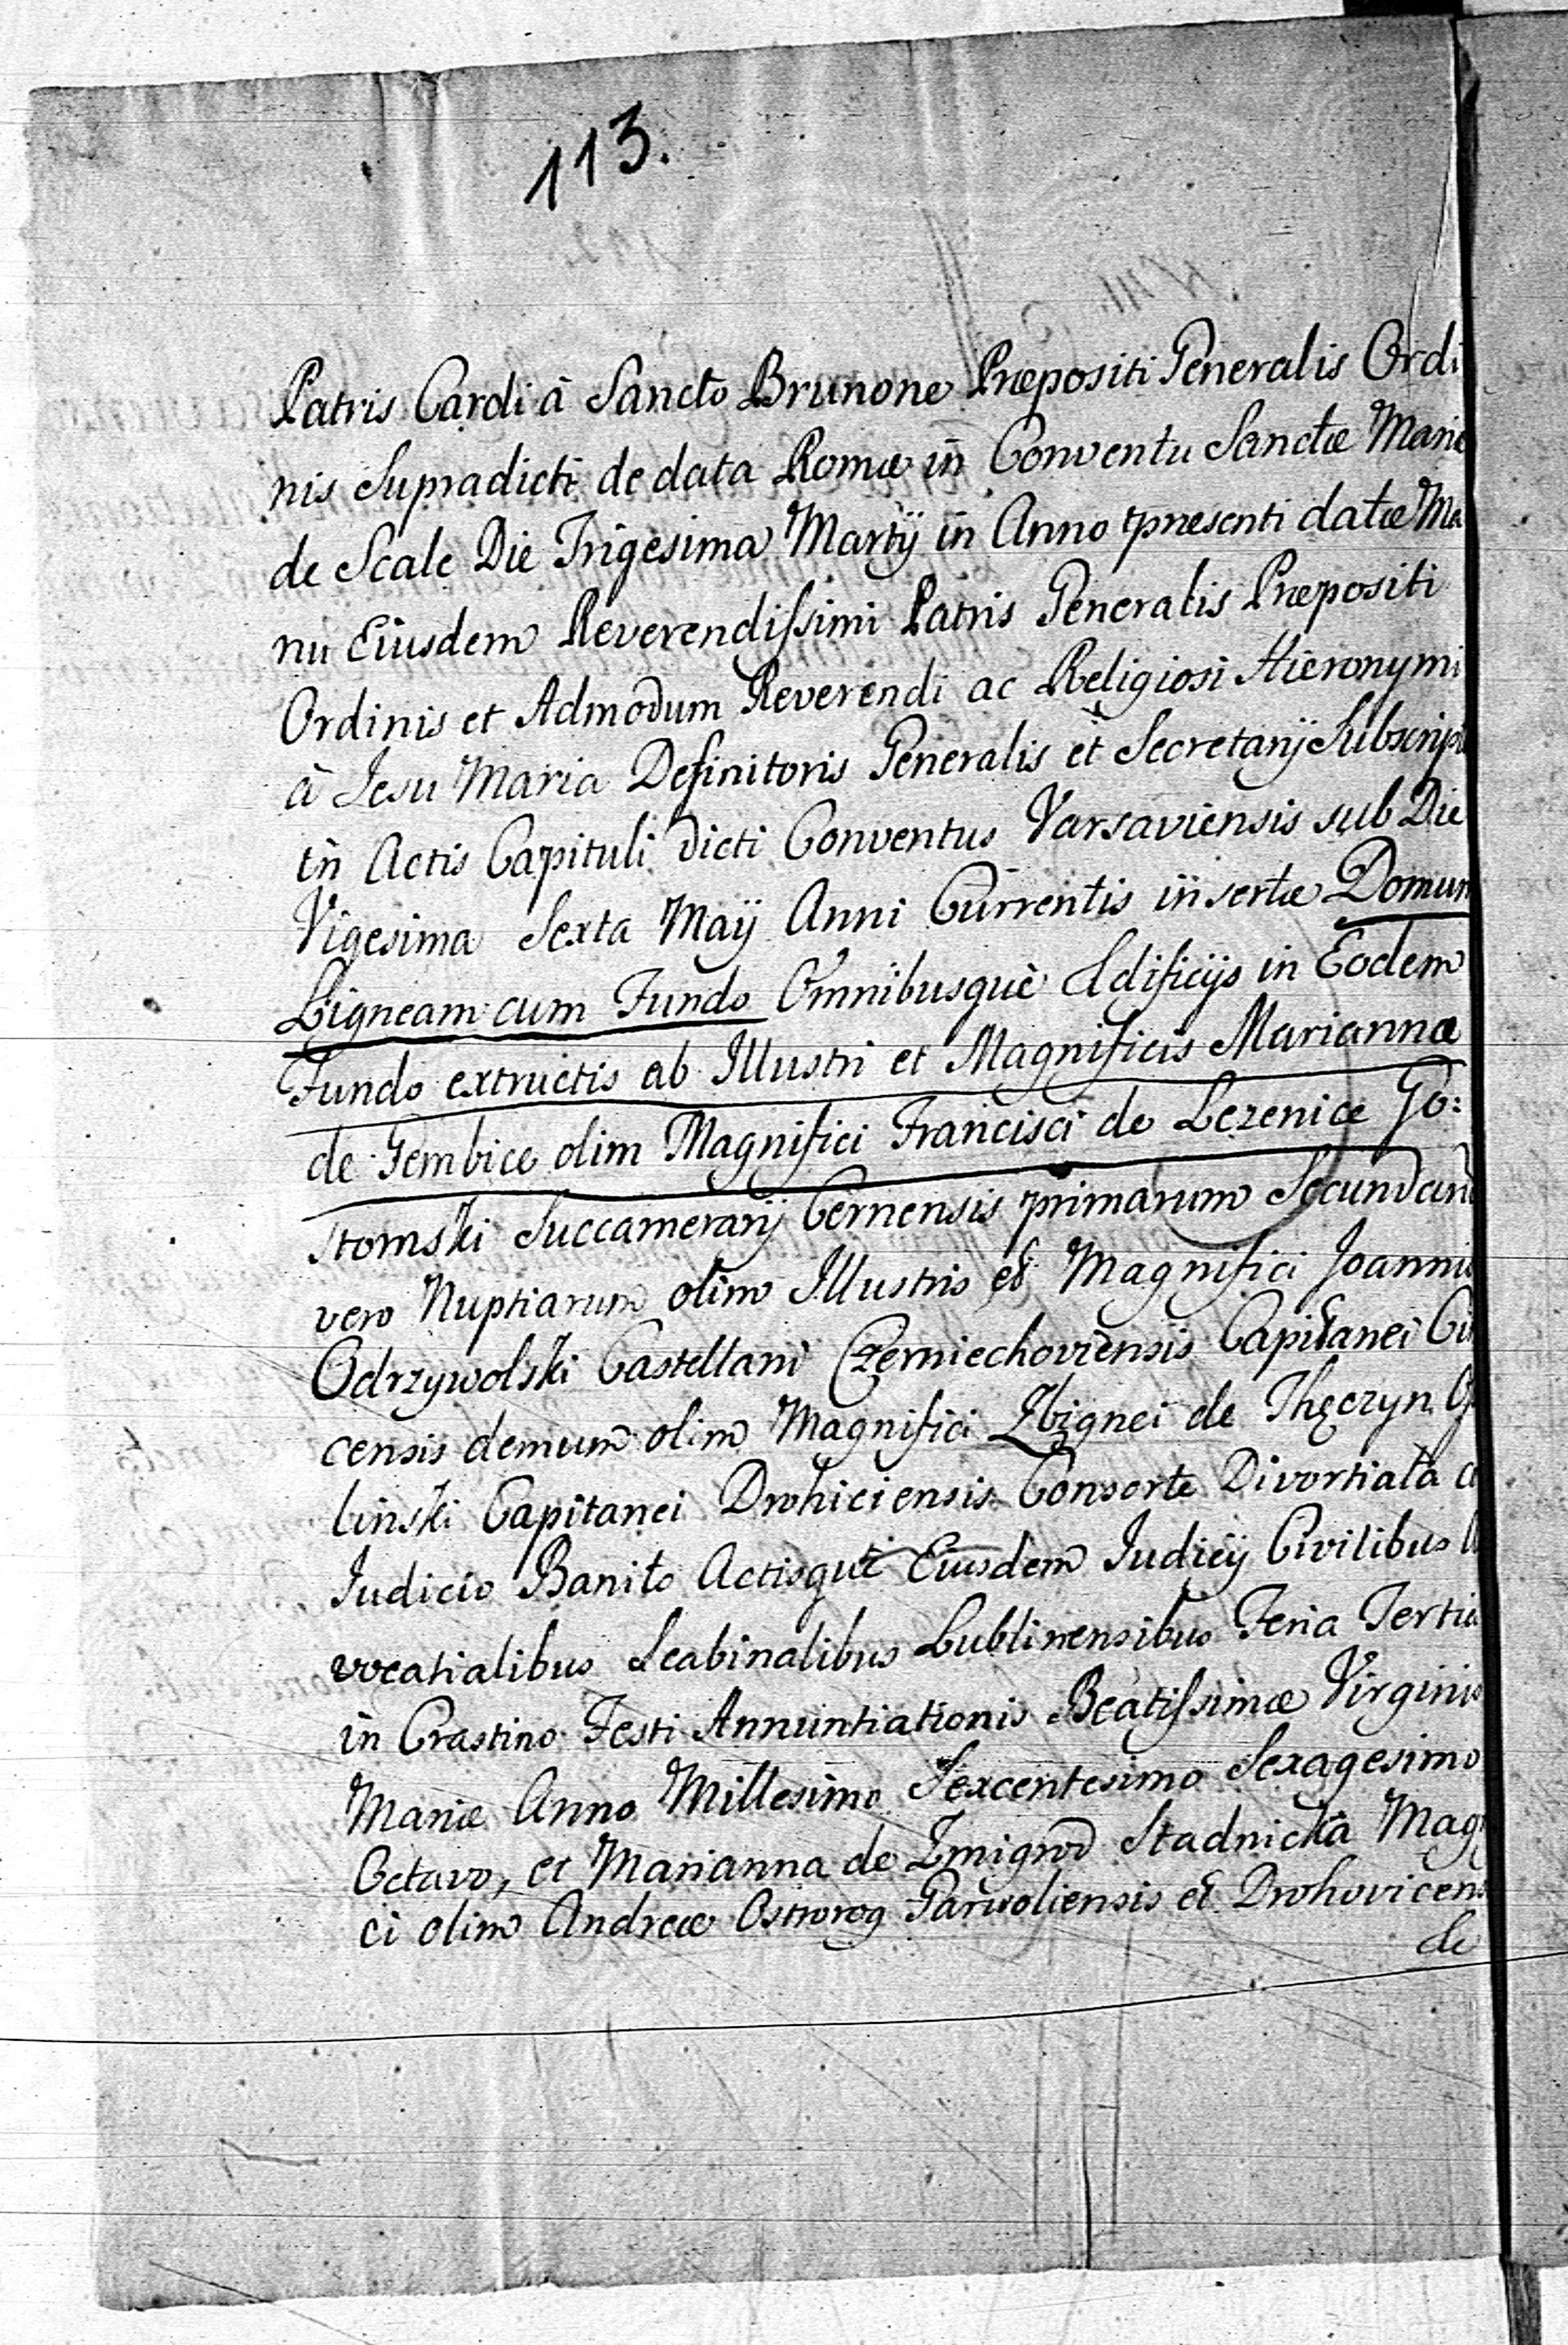 113.
Patris Cardi à Sancto Brunone Præpositi Generalis Ordi
nis Supradicti de data Romæ in Conventu Sanctæ Mariæ
de Scale Die Trigesima Martÿ in Anno præsenti datæ Ma
nu Eiusdem Reverendissimi Patris Generalis Præpositi
Ordinis et Admodum Reverendi ac Religiosi Hieronymi
à Jesu Maria Definitoris Generalis et Secretarÿ Subscript
in Actis Capituli dicti Conventus Varsaviensis sub Die
Vigesima Sexta Maÿ Anni Currentis insertæ Domum
Ligneam cum Fundo Omnibusque Ædificÿs in Eodem
Fundo extructis ab Illustri et Magnificis Marianna
de Gembice olim Magnifici Francisci de Lezenice Go:
stomski Succamerarÿ Cernensis primarum Secundarum
vero Nuptiarum olim Illustris et Magnifici Joannis
Odrzywolski Castellani Czerniechoviensis Capitanei
censis demum olim Magnifici Zbignei de Thęczyn
linski Capitanei Drohiciensis Consorte Divortiata
Judicio Banito Actisque Eiusdem Judicÿ Civilibus
vocatialibus Scabinalibus Lublinensibus Feria Tertia
in Crastino Festi Annuntiationis Beatissimæ Virginis
Mariæ Anno Millesimo Sexcentesimo Sexagesimo
Octavo, et Marianna de Zmigrod Stadnicka Mag
ci olim Andreæ Ostrorog Garwoliensis et Drohovicens
de